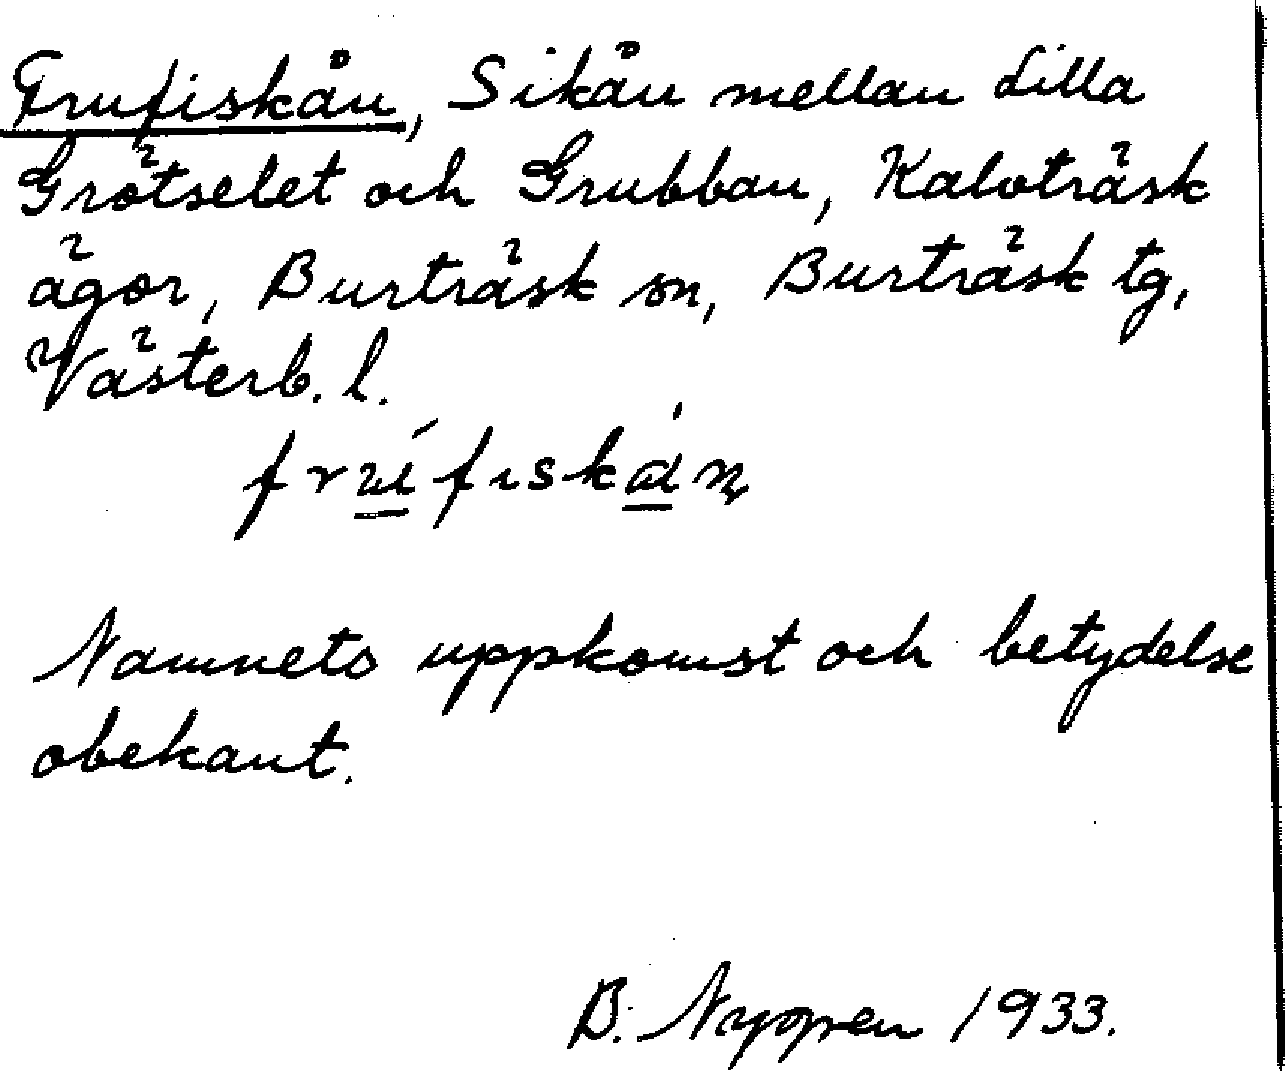 Frufiskån, Sikån mellan Lilla
Grötselet och Grubban, Kalvträsk
ägor, Burträsk sn, Burträsk tg,
Västerb. l.
Namnets uppkomst och betydelse
obekant.
B. Nygren 1933.